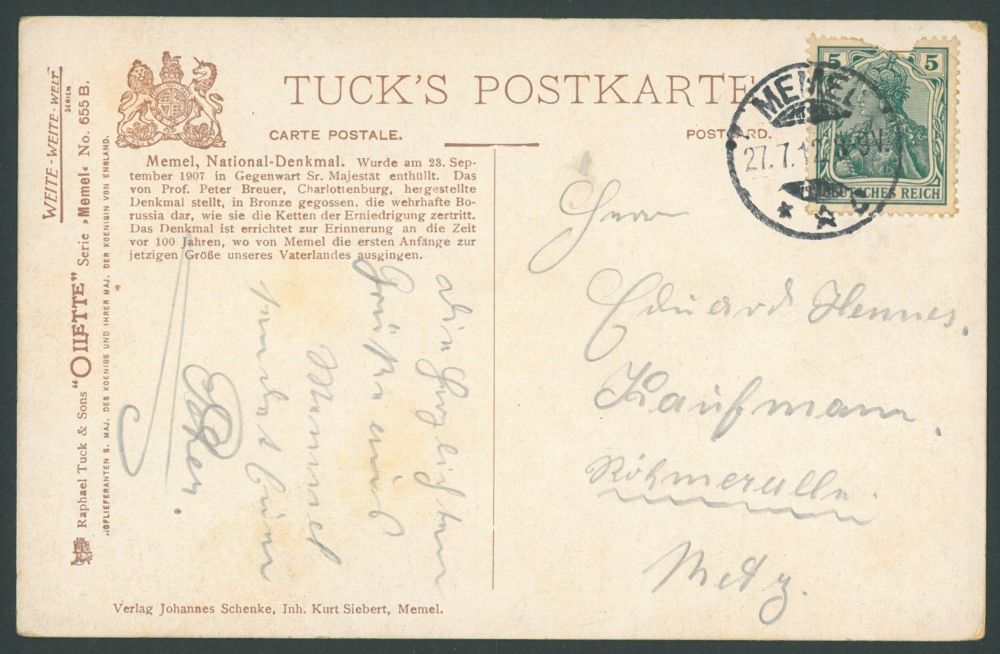 WEITE-WEITE-WELT
SERIEN
Raphael Tuck & Sons "OILETTE" Serie »Memel« No. 655 B.
HOFLIEFERANTEN S. MAJ. DES KOENIGS UND IHRER MAJ. DER KOENIGIN VON ENGLAND.
TUCK'S POSTKARTE
CARTE POSTALE.
POSTCARD.
Memel, National-Denkmal. Wurde am 23. Sep-
tember 1907 in Gegenwart Sr. Majestät enthüllt. Das
von Prof. Peter Breuer, Charlottenburg, hergestellte
Denkmal stellt, in Bronze gegossen, die wehrhafte Bo-
russia dar, wie sie die Ketten der Erniedrigung zertritt.
Das Denkmal ist errichtet zur Erinnerung an die Zeit
vor 100 Jahren, wo von Memel die ersten Anfänge zur
jetzigen Größe unseres Vaterlandes ausgingen.
5 5
DEUTSCHES REICH
MEMEL
27.7.12
Die herzlichsten
Grüße aus
Memmel
sendet Euer
Herrn
Eduard Hennes.
Kaufmann.
Römerallee.
Metz.
Verlag Johannes Schenke, Inh. Kurt Siebert, Memel.